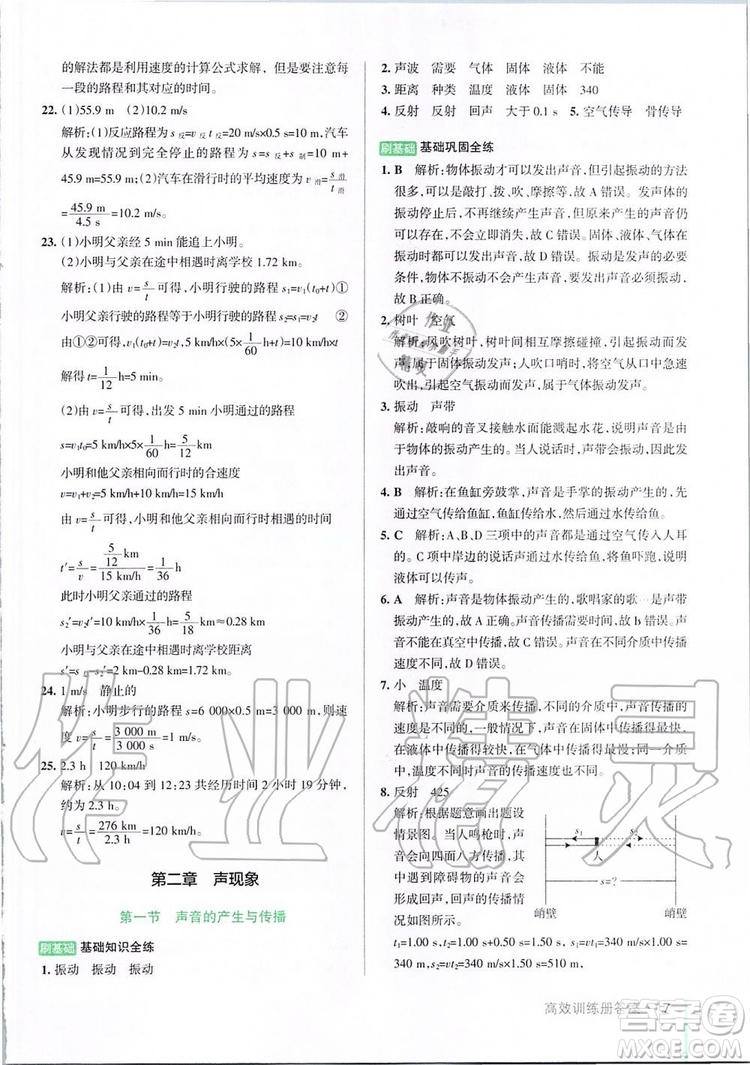 的解法都是利用速度的计算公式求解，但是要注意每
一段的路程和其对应的时间。
22. (1)55.9 m　(2)10.2 m/s
解析：(1)反应路程为 s反=v反t反=20 m/s×0.5 s=10 m，汽车
从发现情况到完全停止的路程 s=s反+s制=10 m+
45.9 m=55.9 m。(2)汽车在滑行时的平均速度为 v滑=s滑/t滑
=45.9 m/4.5 s=10.2 m/s。
23. (1)小明父亲经 5 min 能追上小明。
(2)小明与父亲在途中相遇时离学校 1.72 km。
解析：(1)由 v=s/t可得，小明行驶的路程 s1=v1(t0+t)①
小明父亲行驶的路程等于小明行驶的路程 s1=v2t　②
由①②可得，v1(t0+t)=v2t，即 5 km/h×(5×1/60 h+t)=10 km/h×t
解得 t=5 min
(2)由 v=s/t可得，出发 5 min 小明通过的路程
s=v1t0=5 km/h×5×1/60 h=5/12 km
小明和他父亲相向而行时的合速度
v=v1+v2=5 km/h+10 km/h=15 km/h
由 v=s/t可得，小明和他父亲相向而行时相遇的时间
t′=s/v=5/12 km/15 km/h=1/36 h
此时小明父亲行驶的路程
s2′=v2t′=10 km/h×1/36 h=10/36 km≈0.28 km
小明与父亲在途中相遇时离学校距离
s′=s-s2′=2 km-0.28 km=1.72 km。
24. 1 m/s　静止的
解析：小明步行的路程 s=6 000×0.5 m=3 000 m，则速
度 v=s/t=3 000 m/3 000 s=1 m/s。
25. 2.3 h　120 km/h
解析：从 10:04 到 12:23 共经历时间 2 小时 19 分钟，
约为 2.3 h。
v=s/t=276 km/2.3 h=120 km/h。
第二章　声现象
第一节　声音的产生与传播
刷基础 基础知识全练
1. 振动　振动　振动
2. 声波　需要　气体　固体　液体　不能
3. 距离　种类　温度　液体　固体　340
4. 反射　反射　回声　大于 0.1 s　5. 空气传导　骨传导
刷基础 基础巩固全练
1. B　解析：物体振动才可以发出声音，但引起振动的方法
很多，可以是敲打、拨、吹、摩擦等，故 A 错误。发声体的
振动停止后，不再继续产生声音，但原来产生的声音仍
可以存在，不会立即消失，故 C 错误。固体、液体、气体在
振动时都可以发出声音，故 D 错误。振动是发声的必要
条件，物体不振动不会产生声音，发出声音必须振动，
故 B 正确。
2. 树叶　空气
解析：风吹树叶，树叶间相互摩擦碰撞，引起树叶振动发
声，属于固体发声；人吹口哨时，将空气从口中急速
吹出，引起空气振动而产生声音，属于气体发声。
3. 振动　声带
解析：敲响的音叉接触水面而能溅起水花，说明声音是
由于物体的振动产生的。当人说话时，声带会振动，从而
发出声音。
4. B　解析：在鱼缸旁鼓掌，声音是手掌的振动产生的，先
通过空气传给鱼缸，鱼缸传给水，然后水传给鱼。
5. C　解析：A、B、D 三项中的声音都是通过空气传入人耳
的。C 项中岸边的说话声通过水传给鱼，将鱼吓跑，说明
液体可以传声。
6. A　解析：声音是物体振动产生的，歌唱家的歌声是声带
振动产生的，故 A 正确。声音的传播需要时间，故 B 错误。
声音不能在真空中传播，故 C 错误。声音在不同介质中传
播的速度不同，故 D 错误。
7. 小　温度
解析：声音需要介质来传播，不同的介质中，声音的传播
速度不同。一般情况下，声音在固体中传播得最快，
在液体中传播得较快，在气体中传播得最慢；介质的温
度不同时声音的传播速度也不同。
8. 反射　425
解析：根据题意画出题设
情景图。当人鸣枪时，声
音会向两个方向传播，声音
遇到障碍物的声音会沿
原来的方向反射回去。
s1　s2
人
s=?
峭壁　峭壁
t1=1.00 s，t2=1.50 s，由 v=s/t可得，s1=v1t1=340 m/s×1.00 s=
340 m，s2=v1t2=340 m/s×
高效训练册答案　7
作业精灵
答案卷
MXQE.COM